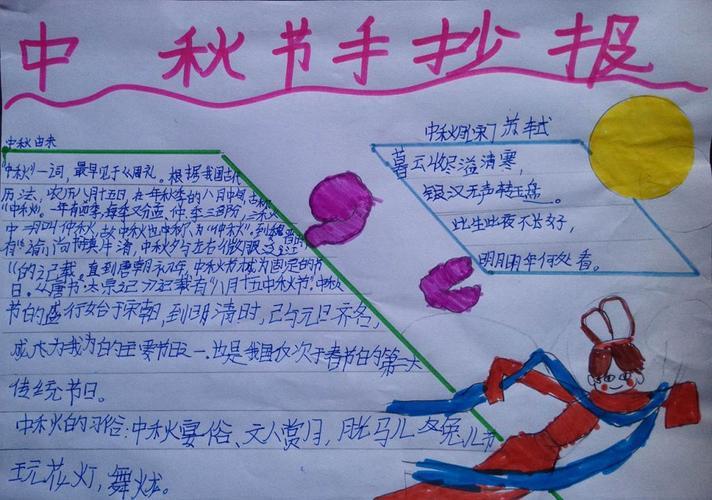 中秋节手抄报
中秋由来
"中秋"一词，最早见于《周礼》。根据我国古代
历法，农历八月十五日，在一年秋季的八月中旬，古称
"中秋"。一年有四季，每季又分孟、仲、季三部分，三秋
中一月叫仲秋，故中秋也称为"仲秋"。到魏晋时
有"谕尚书镇牛清，中秋夕与左右微服泛江
"的记载。直到唐朝初年，中秋节才成为固定的节
日。《唐书·太宗记》记载有"八月十五中秋节"中秋
节的盛行始于宋朝，到明清时，已与元旦齐名，
成为我的主要节日之一。也是我国仅次于春节的第二大
传统节日。
中秋的习俗：中秋宴俗、文人赏月，月饼儿及兔儿节
玩花灯，舞火龙。
中秋月 宋 苏轼
暮云收尽溢清寒，
银汉无声转玉盘。
此生此夜不长好，
明月明年何处看。